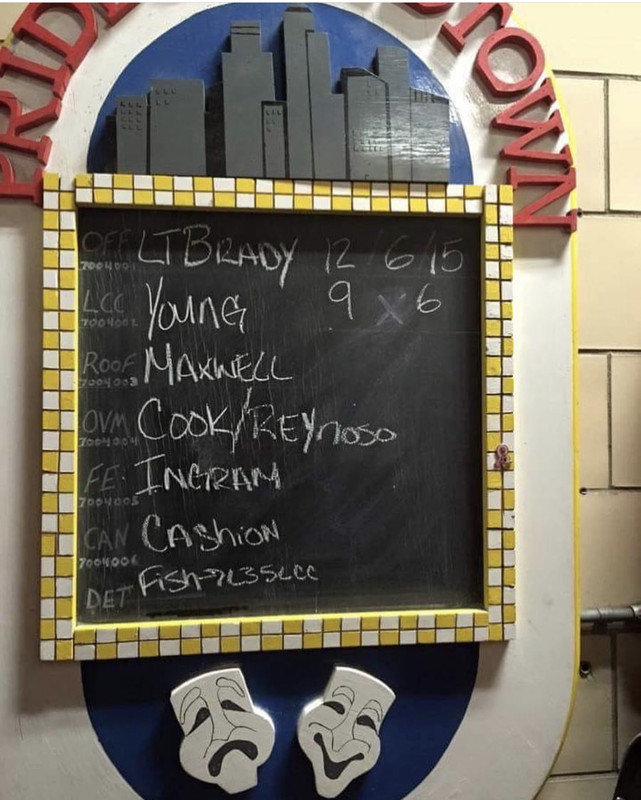 PRIDE
OWN
OFF LT BRADY 12 / 6 / 15
7004001
LCC YOUNG 9 X 6
7004002
ROOF MAXWELL
7004003
OVM COOK/REYNOSO
7004004
FE INGRAM
7004005
CAN CASHION
7004006
DET FISH-7L35LCC